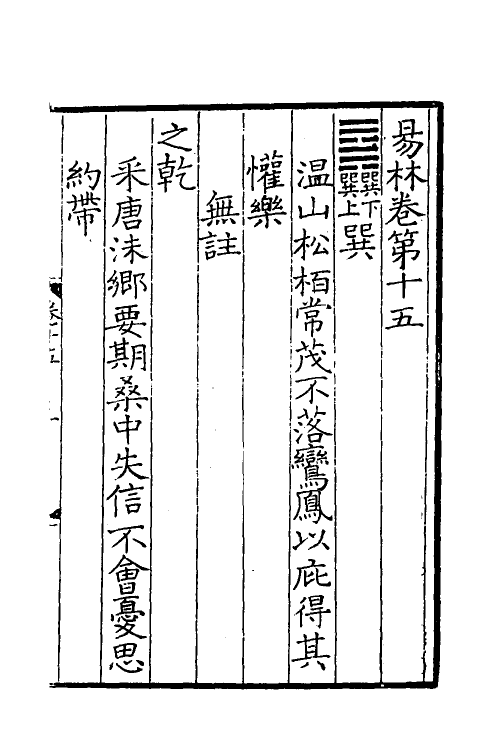 易林卷第十五
䷸巽下巽上巽
温山松栢常茂不落鸞鳳以庇得其
懽樂
無註
之乾
釆唐沬鄉要期桑中失信不會憂思
約帶
卷十五